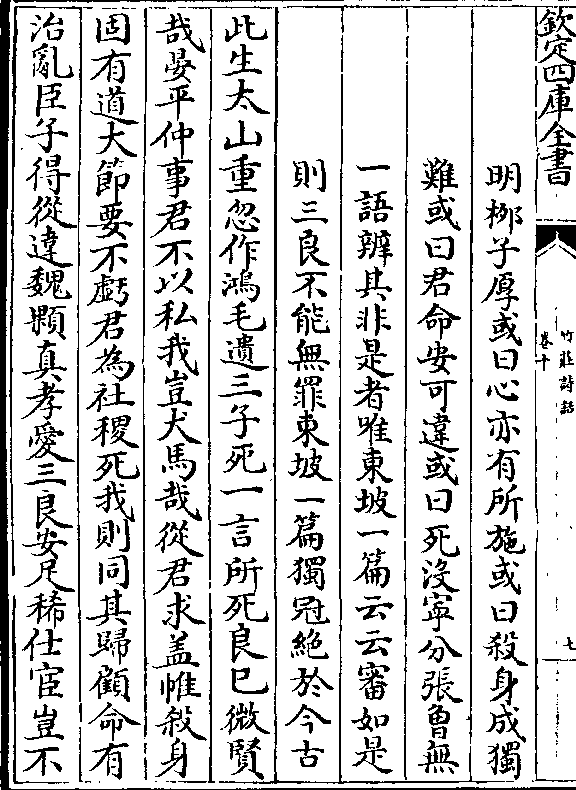 欽定四庫全書
竹莊詩話
卷十
七
明栁子厚或曰心亦有所施或曰殺身成獨
難或曰君命安可違或曰死沒寧分張曾無
一語辨其非是者唯東坡一篇云云審如是
則三良不能無罪東坡一篇獨冠絶於今古
此生太山重忽作鴻毛遺三子死一言所死良已微賢
哉晏平仲事君不以私我豈犬馬哉從君求盖帷殺身
固有道大節要不虧君為社稷死我則同其歸顧命有
治亂臣子得從違魏顆真孝愛三良安足稀仕宦豈不